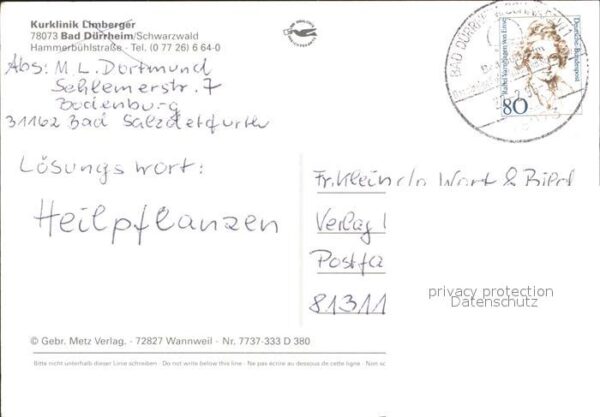 Kurklinik Limberger
78073 Bad Dürrheim/Schwarzwald
Hammerbühlstraße · Tel. (0 77 26) 6 64-0
Abs: M. L. Dortmund
Sehlemerstr. 7
Bodenburg
31162 Bad Salzdetfurth
Lösungswort:
Heilpflanzen
BAD DÜRRHEIM
Rahel Varnhagen von Ense
Deutsche Bundespost
80
Wort & Bild
Verlag
Postfa
81311
privacy protection
Datenschutz
© Gebr. Metz Verlag. · 72827 Wannweil · Nr. 7737-333 D 380
Bitte nicht unterhalb dieser Linie schreiben · Do not write below this line · Ne pas écrire au dessous de cette ligne · Non sc